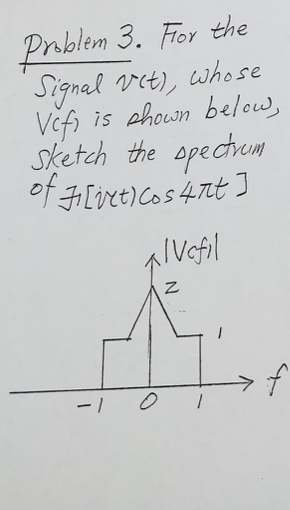 Problem 3. For the
Signal v(t), whose
V(f) is shown below,
Sketch the spectrum
of F[v(t)cos4πt]
|V(f)|
2
1
f
-1 0 1